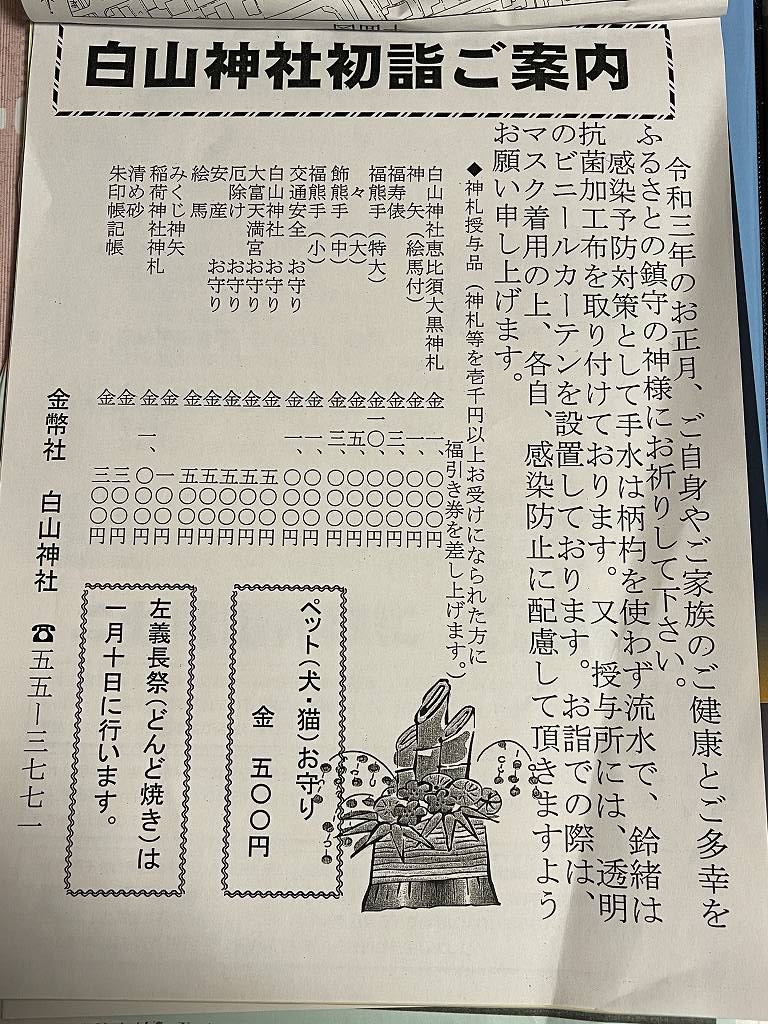 白山神社初詣ご案内
令和三年のお正月、ご自身やご家族のご健康とご多幸を
ふるさとの鎮守の神様にお祈りして下さい。
感染予防対策として手水は柄杓を使わず流水で、鈴緒は
抗菌加工布を取り付けております。又、授与所には、透明
のビニールカーテンを設置しております。お詣での際は、
マスク着用の上、各自、感染防止に配慮して頂きますよう
お願い申し上げます。
◆神札授与品(神札等を壱千円以上お受けになられた方に
福引き券を差し上げます。)
白山神社恵比須大黒神札 金 一、〇〇〇円
神矢(絵馬付) 金 一、〇〇〇円
福寿俵 金 三、〇〇〇円
福熊手(特大) 金一〇、〇〇〇円
々(大) 金 五、〇〇〇円
飾熊手(中) 金 三、〇〇〇円
福熊手(小) 金 一、〇〇〇円
交通安全 お守り 金 一、〇〇〇円
白山神社 お守り 金 五〇〇円
大富天満宮お守り 金 五〇〇円
厄除け お守り 金 五〇〇円
安産 お守り 金 五〇〇円
絵馬 金 五〇〇円
みくじ神矢 金 一〇〇円
稲荷神社神札 金 一、〇〇〇円
清め砂 金 三〇〇円
朱印帳記帳 金 三〇〇円
ペット(犬・猫)お守り
金 五〇〇円
左義長祭(どんど焼き)は
一月十日に行います。
金幣社 白山神社 ☎五五ー三七七一